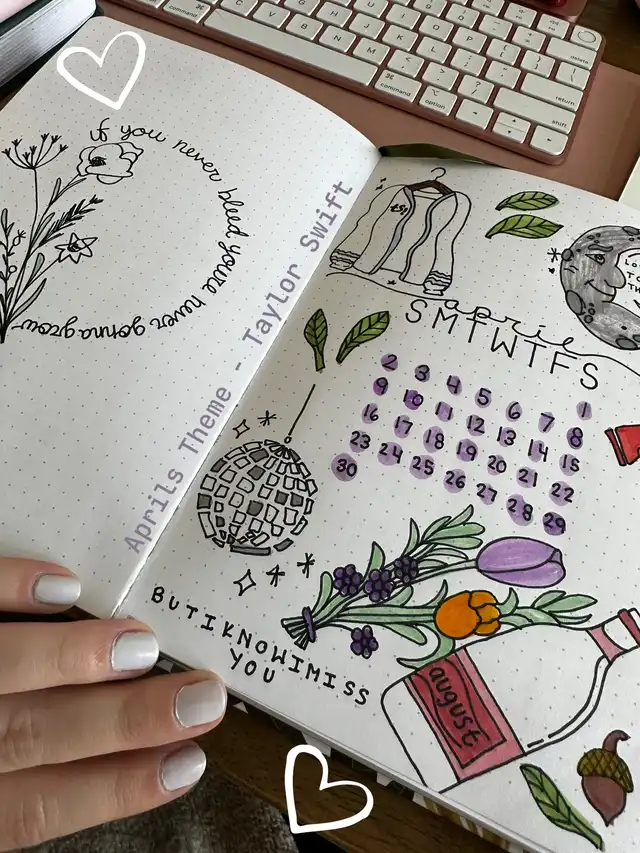 if you never bleed you're never gonna grow
Aprils Theme - Taylor Swift
april
SMTWTFS
1
2 3 4 5 6 7 8
9 10 11 12 13 14 15
16 17 18 19 20 21 22
23 24 25 26 27 28 29
30
BUT I KNOW I MISS
YOU
august
command
option
command
delete
return
shift
C V B N M